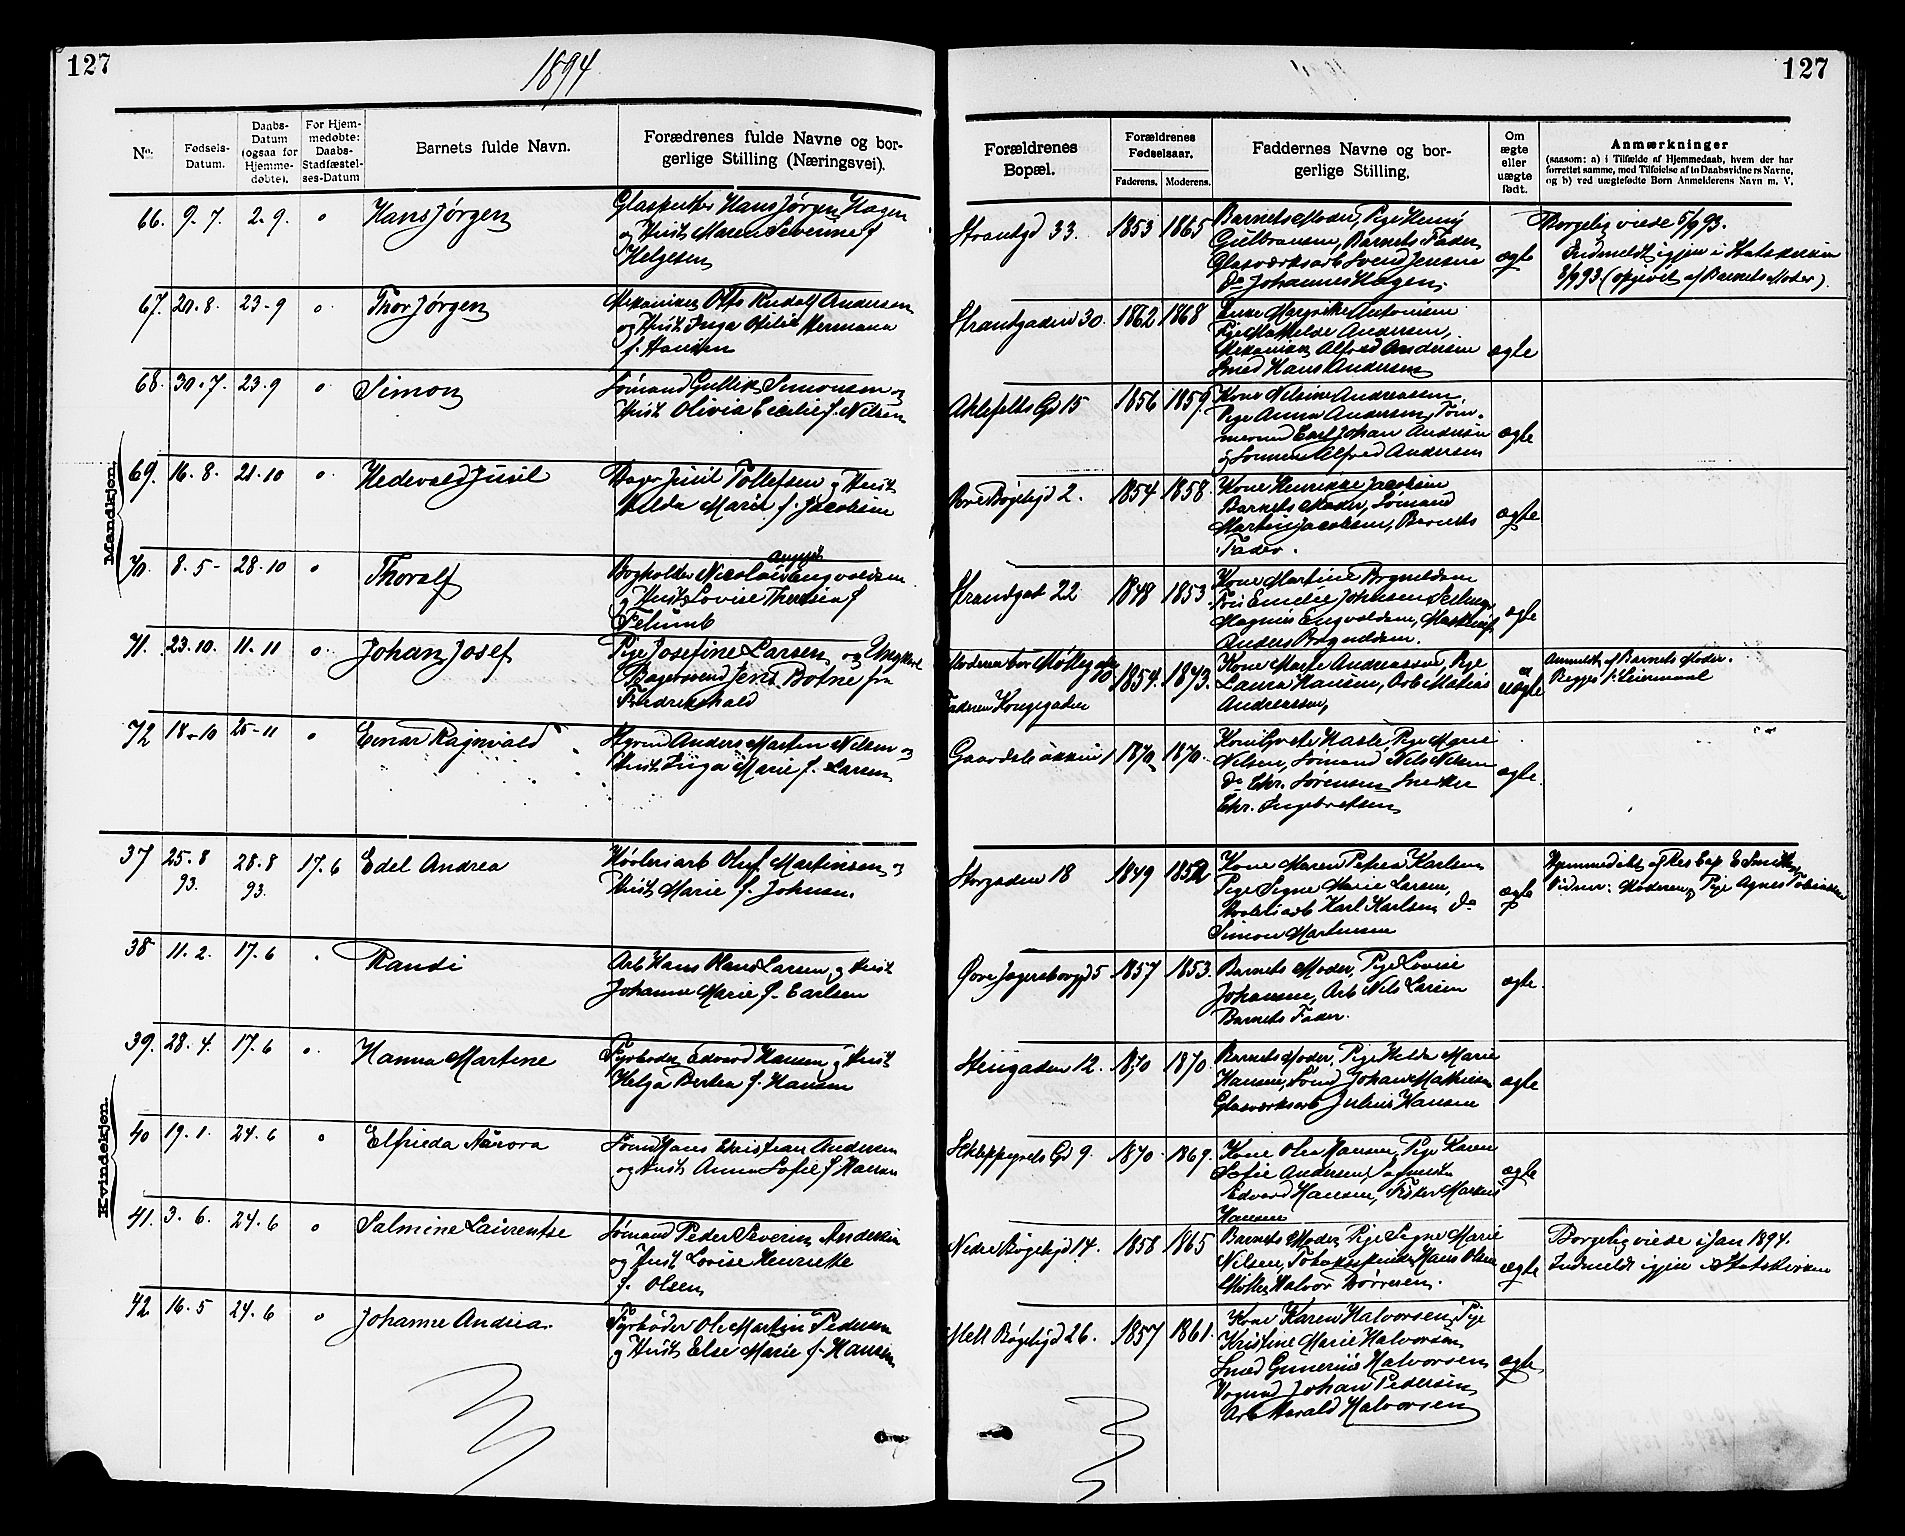 127
1894
127
No.
Fødsels-
Datum.
Daabs-
Datum
(ogsaa for
Hjemme-
døbte).
For Hjem-
medøbte:
Daabs-
Stadfæstel-
ses-Datum
Barnets fulde Navn.
Forædrenes fulde Navne og bor-
gerlige Stilling (Næringsvei).
Forældrenes
Bopæl.
Forældrenes
Fødselsaar.
Faderens.
Moderens.
Faddernes Navne og bor-
gerlige Stilling.
Om
ægte
eller
uægte
født.
Anmærkninger
(saasom: a) i Tilfælde af Hjemmedaab, hvem der har
forrettet samme, med Tilføielse af to Daabsvidners Navne,
og b) ved uægtefødte Børn Anmelderens Navn m. V.
Mandkjøn.
66. 9. 7. 2. 9. " Hans Jørgen
Hans Jørgen Hagen
og Hust. Maren Severine f
Helgesen
Strandgd 33. 1853 1865
Barnets Moder, Pige Henny
Gulbransen, Barnets Fader
Glasværksarb Svend Jensen
Do Johannes Hagen,
ægte
Borgelig viede 5/9 93.
Indmeldt igjen i Statskirken
8/9 93 (opgivet af Barnets Moder).
67. 20. 8. 23-9 " Thor Jørgen
Mekaniker Otto Rudolf Andersen
og Hust. Inga Otilie Hermana
f. Hansen
Strandgaden 30. 1862 1868
Margrethe Antonisen
Pige Mathilde Andersen,
Mekaniker Alfred Andersen
Smed Hans Andersen
ægte
68. 30. 7. 23. 9 " Simon
Sømand Gullik Simonsen og
Hust Olivia Cicilie f. Nilsen
Ahlefeldts Gd 15 1856 1859.
Kone Nilsine Andreassen,
Pige Anna Andersen, Tøm-
mermd Carl Johan Andersen
og Sømmand Alfred Andersen
ægte
69. 16. 8. 21. 10 " Hedevald Juul
Juul Tollefsen og Hust
Hilda Marie f. Jacobsen
Øvre Bøgeligd 2. 1854 1858.
Kone Henrikke Jacobsen
Barnets Moder, Sømand
Martin Jacobsen, Barnets
Fader.
ægte
70. 8. 5- 28. 10 " Thoralf
August
Bogholder Nicolai Engvaldsen
og Hust Lovise Theresia f
Strandgad 22 1848 1853
Kone Martine Bogneldsen
Magnus Engvoldsen,
Anders Bogneldsen.
ægte
71. 23. 10. 11. 11 " Johan Josef
Pige Josefine Larsen og Ungkarl
Bagersvend Jens Botne fra
Fredrikshald
Moderen bor Møllegaden
10
Faderen Kongegaden
1854. 1873.
Kone Marte Andreassen, Pige
Laura Hansen, Arb Matias
Andreassen,
uægte
Anmeldt af Barnets Moder.
Begges 1. Leiermaal
72 18-10 25-11 " Einar Ragnvald
Styrmd Anders Martin Nilsen og
Hust. Inga Marie f. Larsen
Gaardsbakken 1 1870 1870.
Nilsen, Sømand Nils Nilsen
Do Chr. Sørensen Snedker
Chr. Ingebretsen
ægte
Kvindekjøn.
37 25. 8
93.
28. 8
93.
17. 6 Edel Andrea
Høvleriarb Oluf Martinsen og
Hust Marie f. Johnsen.
Storgaden 18 1849 1852
Kone Maren Petrea Karlsen
Pige Signe Marie Larsen,
Høvleriarb Karl Karlsen Do
Simon Martinsen
ægte
Hjemmedøbt af Res Cap E Smith
Vidner: Moderen, Pige Agnes Tobiassen
38 11. 2. 17. 6 " Randi
Arb Hans Larsen og Hust
Johanne Marie f. Carlsen
Øvre Jegersborggd 5 1857 1853.
Barnets Moder, Pige Lovise
Johansen, Arb Nils Larsen
Barnets Fader.
ægte.
39. 28. 4. 17. 6 " Hanna Martine
Fyrbøder Edvard Hansen og Hust
Helga Bertea f. Hansen
Stengaden 12. 1870 1870.
Barnets Moder, Pige Hilda Marie
Hansen, Sømd Johan Mathisen
Glasværksarb Julius Hansen
ægte
40 19. 1. 24. 6 " Elfrieda Aurora
Sømd Hans Christian Andersen
og Hust Anna Sofie f Hansen
Skeppegrels Gd 9. 1870 1869.
Kone Olea Hansen, Pige Karen
Sofie Andersen,
Edvard Hansen, Fisker Markus
Hansen
ægte
41. 3. 6. 24. 6 " Salmine Laurentse
Sømand Peder Severin Andersen
og Hust Lovise Henriette
f. Olsen
Nedre Bøgeligd 14. 1858 1865
Barnets Moder, Pige Signe Marie
Nilsen, Hans Olsen
Halvor Børresen.
ægte
Borgelig viede i Jan 1894.
Indmeldt igjen i Statskirken
42 16. 5 24. 6 " Johanne Andrea.
Fyrbøder Ole Martin Pedersen
og Hust Else Marie f. Hansen
Mell Bøgeligd 26. 1857 1861.
Kone Karen Halvorsen, Pige
Kristine Marie Halvorsen
Smed Gunerius Halvorsen
Vognmd Johan Pedersen
Arb Harald Halvorsen
ægte